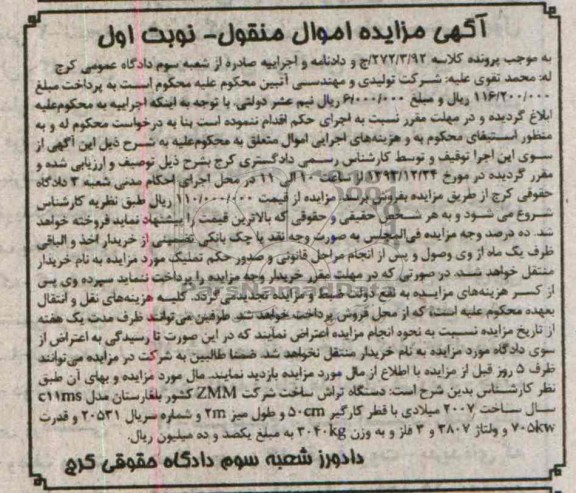 آگهی مزایده اموال منقول- نوبت اول
به موجب پرونده کلاسه ۲۷۲/۳/۹۲/ج و دادنامه و اجراییه صادره از شعبه سوم دادگاه عمومی کرج
له: محمد تقوی علیه: شرکت تولیدی و مهندسی آتبین محکوم علیه محکوم است به پرداخت مبلغ
۱۱۶/۲۰۰/۰۰۰ ریال و مبلغ ۶/۰۰۰/۰۰۰ ریال نیم عشر دولتی. با توجه به اینکه اجراییه به محکوم‌علیه
ابلاغ گردیده و در مهلت مقرر نسبت به اجرای حکم اقدام ننموده است بنا به درخواست محکوم له و به
منظور استیفای محکوم به و هزینه‌های اجرایی اموال متعلق به محکوم‌علیه به شرح ذیل این آگهی از
سوی این اجرا توقیف و توسط کارشناس رسمی دادگستری کرج بشرح ذیل توصیف و ارزیابی شده و
مقرر گردیده در مورخ ۱۳۹۳/۱۲/۲۴ از ساعت ۱۰ الی ۱۱ در محل اجرای احکام مدنی شعبه ۳ دادگاه
حقوقی کرج از طریق مزایده بفروش برسد. مزایده از قیمت ۱۱۰/۰۰۰/۰۰۰ ریال طبق نظریه کارشناس
شروع می شود و به هر شخص حقیقی و حقوقی که بالاترین قیمت را پیشنهاد نماید فروخته خواهد
شد. ده درصد وجه مزایده فی‌المجلس به صورت وجه نقد یا چک بانکی تضمینی از خریدار اخذ و الباقی
ظرف یک ماه از وی وصول و پس از انجام مراحل قانونی و صدور حکم تملیک مورد مزایده به نام خریدار
منتقل خواهد شد. در صورتی که در مهلت مقرر خریدار وجه مزایده را پرداخت ننماید سپرده وی پس
از کسر هزینه‌های مزایده به نفع دولت ضبط و مزایده تجدید می گردد. کلیه هزینه‌های نقل و انتقال
بعهده محکوم علیه است که از محل فروش پرداخت خواهد شد. طرفین می توانند ظرف مدت یک هفته
از تاریخ مزایده نسبت به نحوه انجام مزایده اعتراض نمایند که در این صورت تا رسیدگی به اعتراض از
سوی دادگاه مورد مزایده به نام خریدار منتقل نخواهد شد. ضمنا طالبین به شرکت در مزایده می توانند
ظرف ۵ روز قبل از مزایده با اطلاع از مال مورد مزایده بازدید نمایند. مال مورد مزایده و بهای آن طبق
نظر کارشناس بدین شرح است: دستگاه تراش ساخت شرکت ZMM کشور بلغارستان مدل c۱۱ms
سال ساخت ۲۰۰۷ میلادی با قطر کارگیر ۵۰cm و طول میز ۲m و شماره سریال ۲۰۵۳۱ و قدرت
۷۰۵kw و ولتاژ ۳۸۰۷ و ۳ فاز و به وزن ۳۰۴۰kg به مبلغ یکصد و ده میلیون ریال.
دادورز شعبه سوم دادگاه حقوقی کرج
ParsNamadData